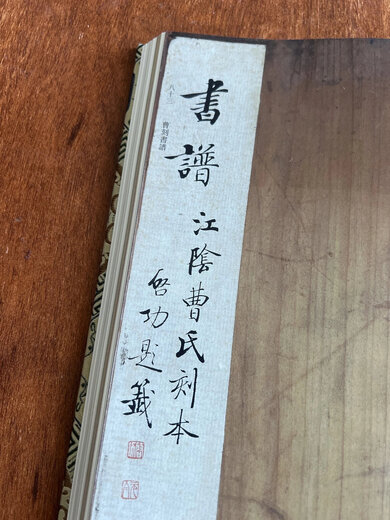 八十三 曹刻書譜
書譜 江陰曹氏刻本
啓功題籤